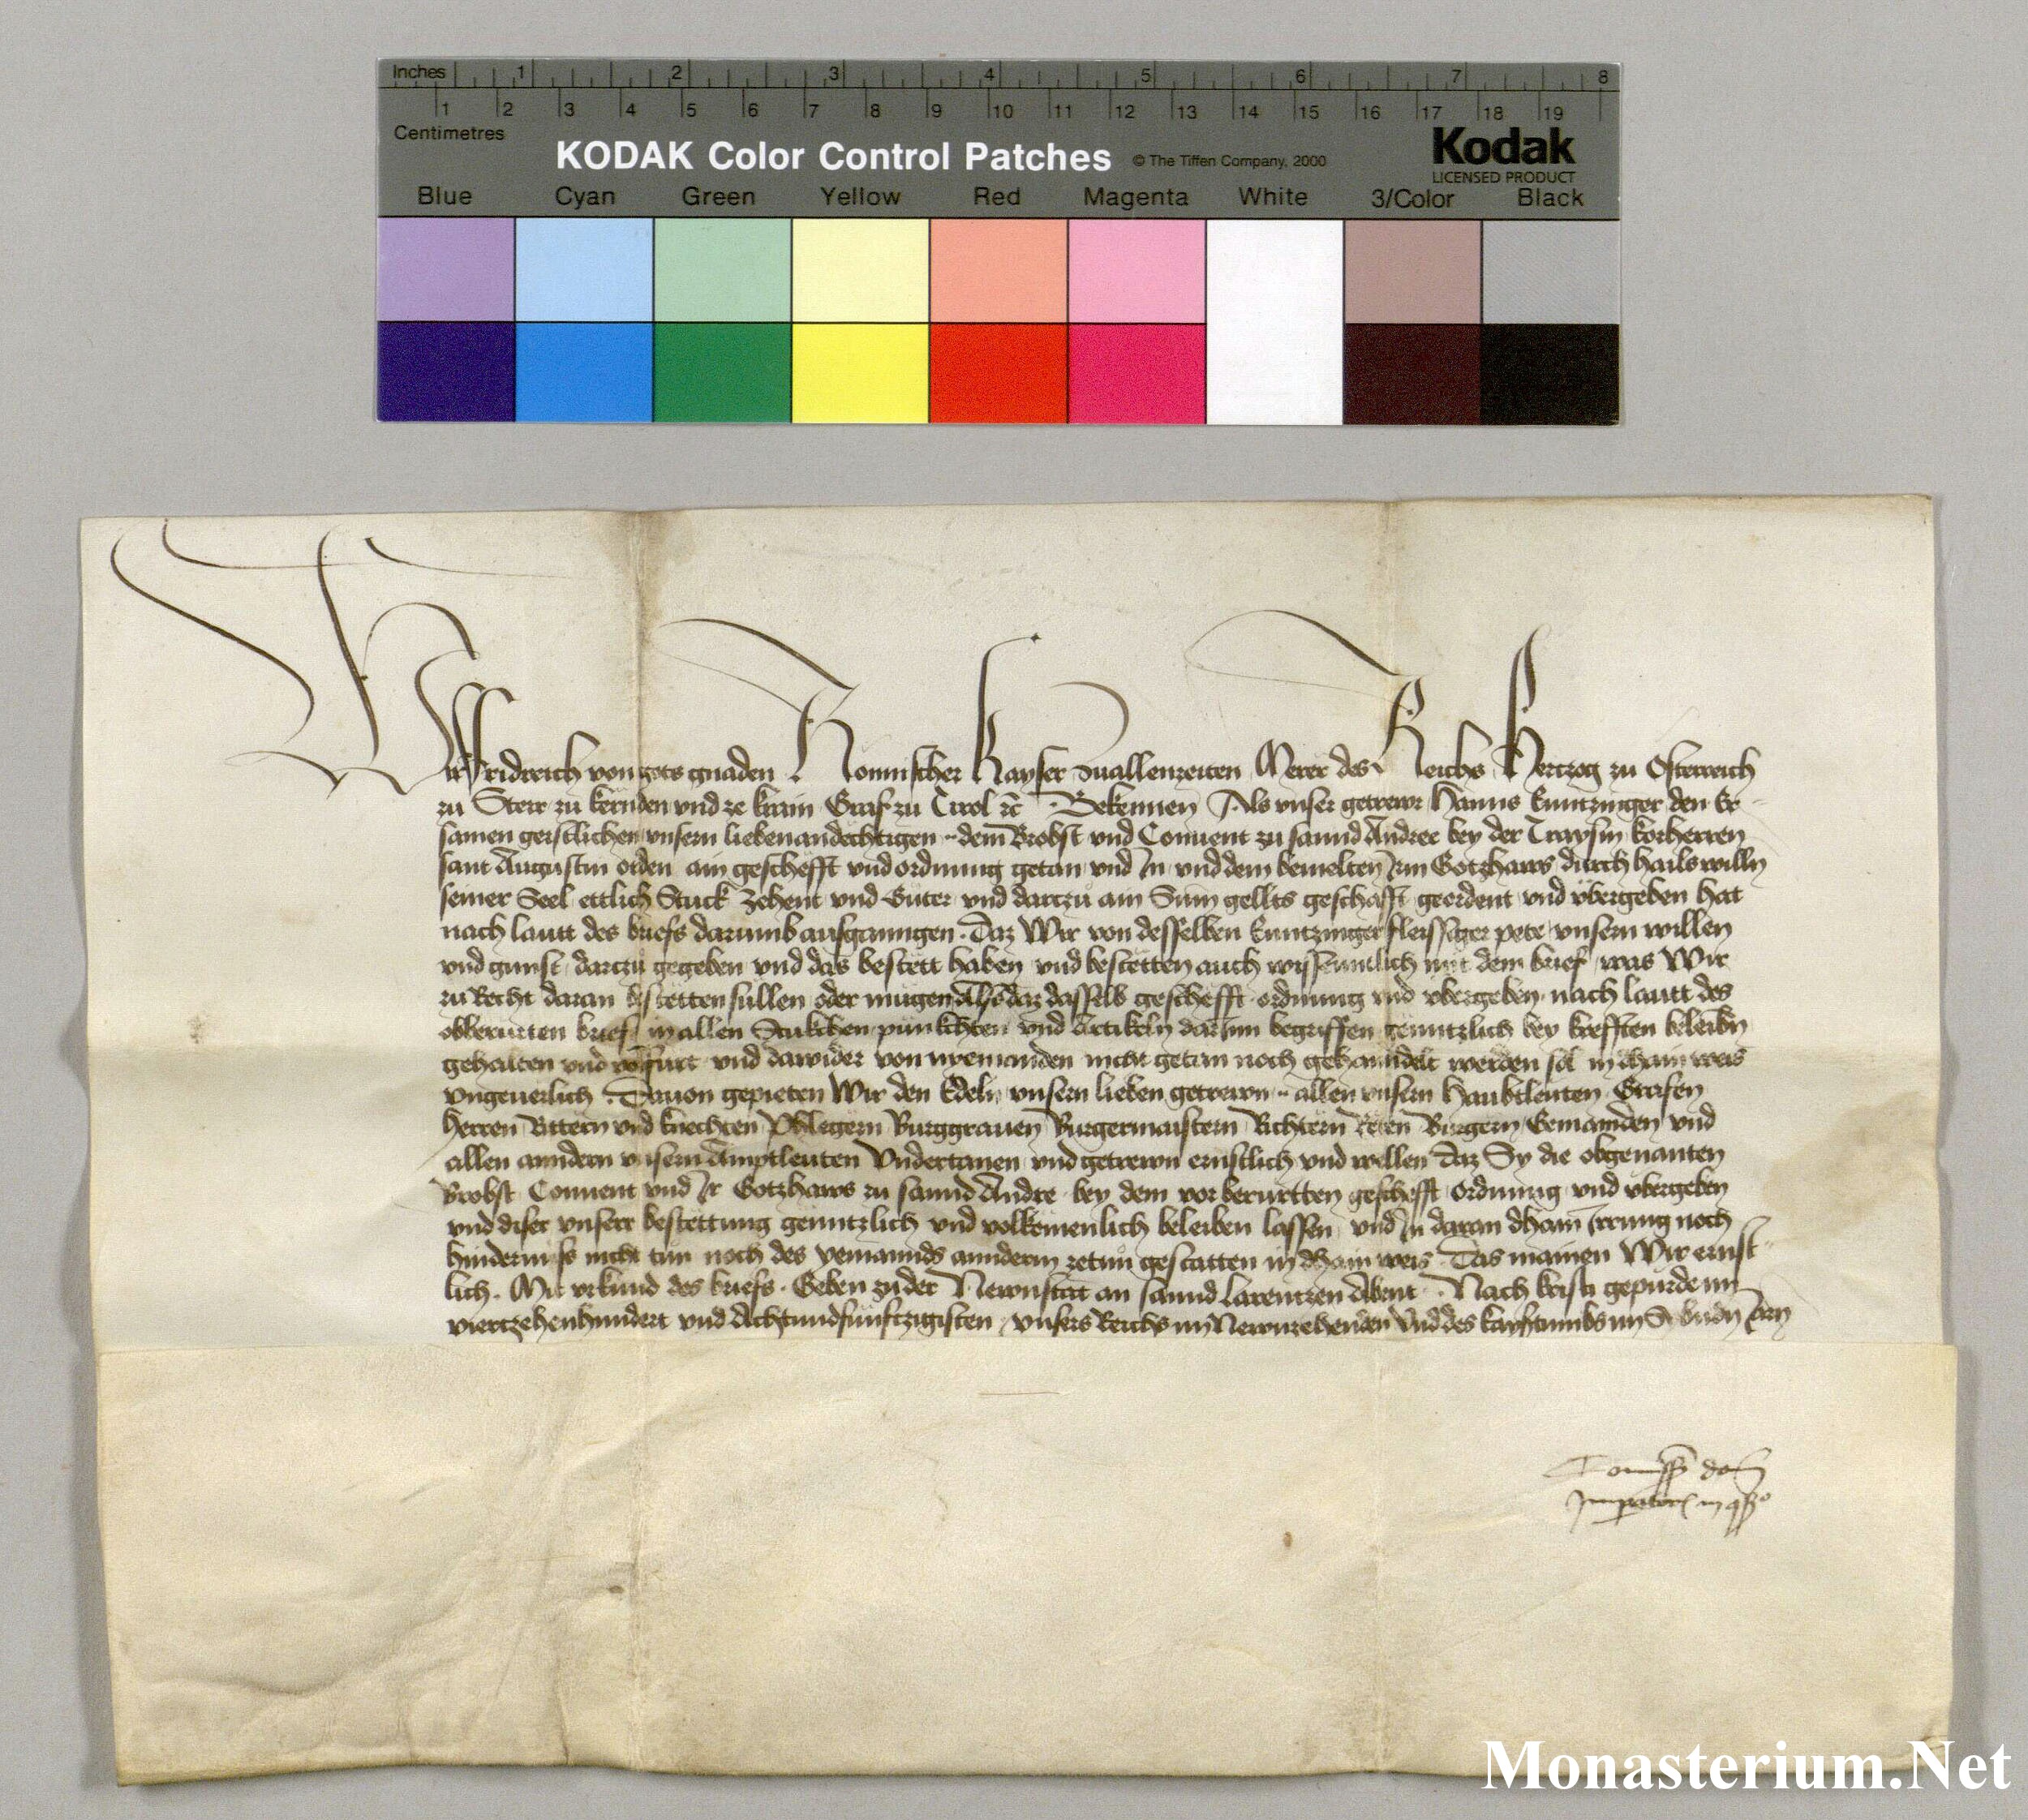 Inches 1 2 3 4 5 6 7 8
1 2 3 4 5 6 7 8 9 10 11 12 13 14 15 16 17 18 19
Centimetres
KODAK Color Control Patches © The Tiffen Company, 2000 Kodak
LICENSED PRODUCT
Blue Cyan Green Yellow Red Magenta White 3/Color Black
Wir Fridreich von gots gnaden Romischer Kayser zuallenzeiten Merer des Reichs Hertzog zu Osterreich
zu Steir zu kernden vnd ze krain Graf zu Tirol ꝛc Bekennen Als vnser getrewr Hanns Enntzinger den Er
samen geistlichen vnsern lieben andechtigen dem Brobst vnd Conuent zu sannd Andree bey der Traysm korherren
sant Augustin orden ain geschefft vnd ordnung getan vnd In vnd dem bemelten irm Gotzhaws durch hails willn
seiner Seel ettlich Stuck zehent vnd Güter vnd darczu ain Sum gellts geschafft geordent vnd vbergeben hat
nach lautt des briefs darumb ausgangen. Daz Wir von desselben Enntzinger fleissiger pete vnsern willen
vnd gunst darczu gegeben vnd das bestett haben vnd bestetten auch wissenntlich mit dem brief was Wir
zu Recht daran bestetten sullen oder mugen Also daz dasselb geschefft ordnung vnd vbergeben nach lautt des
obberurten briefs in allen Stukchen punkchten vnd Artikeln darinn begriffen genntzlich bey krefften beleibn
gehalten vnd volfürt vnd dawider von nyemanden nicht getan noch gehanndelt werden sol in dhain weis
vngeuerlich. Dauon gepieten Wir den Edeln vnsern lieben getrewn allen vnsern Haubtleuten Grafen
Herren Rittern vnd knechten Phlegern Burggrauen Burgermaistern Richtern Reten Burgern Gemainden vnd
allen anndern vnsern Amptleuten Vndertanen vnd getrewn ernstlich vnd wellen Daz Sy die obgenanten
Brobst Conuent vnd Ir Gotzhaws zu sannd Andre bey dem vorberurtten geschefft ordnung vnd vbergeben
vnd diser vnserr bestettung genntzlich vnd volkomenlich beleiben lassen vnd In daran dhain Irrung noch
hindernüss nicht tün noch des yemannds annderm zetun gestatten in dhain weis Das mainen Wir ernst
lich. Mit vrkund des briefs. Geben zu der Newnstat an sannd Larentzen Abent Nach kristi gepurde im
viertzehenhundert vnd Achtundfünftzigisten vnsers Reichs im Newnzehenden Vnd des kaysertumbs im Sibndn Jarn
Monasterium.Net